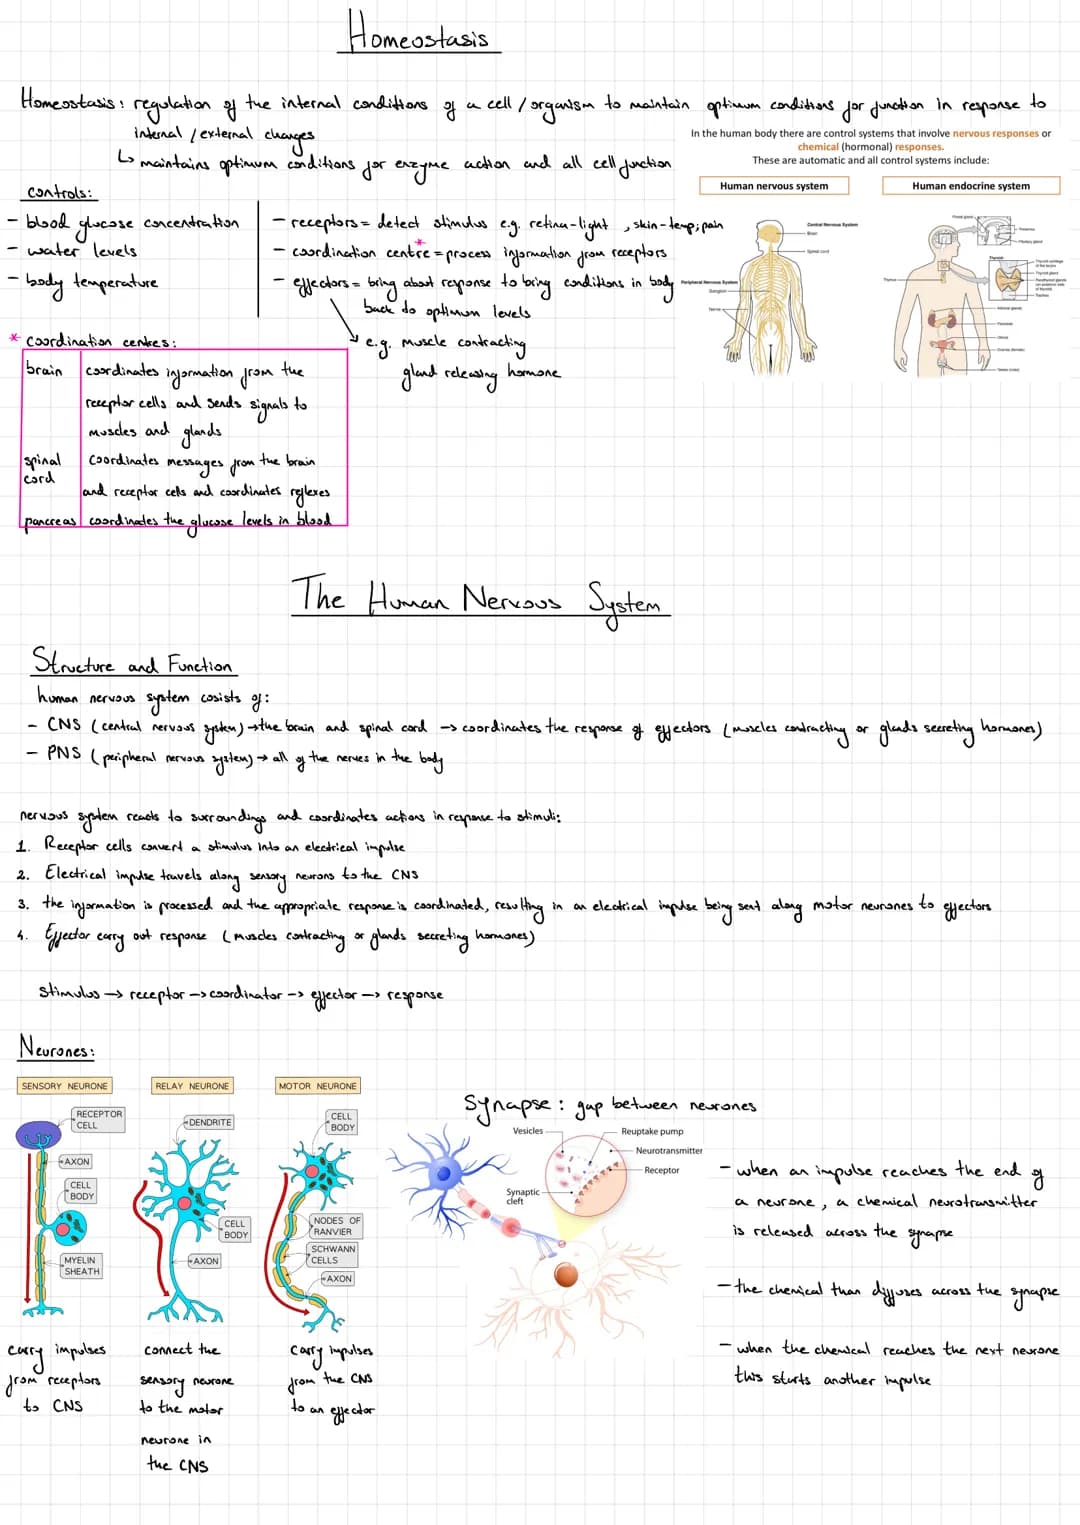 Homeostasis
Homeostasis: regulation of the internal conditions of a cell / organism to maintain optimum conditions for function in response to
internal / external changes
↳ maintains optimum conditions for enzyme action and all cell function
In the human body there are control systems that involve nervous responses or
chemical (hormonal) responses.
These are automatic and all control systems include:
Human nervous system
Human endocrine system
controls:
- blood glucose concentration
- water levels
- body temperature
- receptors = detect stimulus e.g. retina-light, skin-temp; pain
- coordination centre* = process information from receptors
- effectors = bring about response to bring conditions in body
back do optimum levels
e.g. muscle contracting
gland releasing hormone
Central Nervous System
Brain
Spinal cord
Peripheral Nervous System
Ganglion
Nerve
Pineal gland
Pituitary gland
Thyroid
Thyroid gland
Trachea
Thymus
Adrenal glands
Pancreas
Ovaries (female)
Testes (male)
* Coordination centres:
brain coordinates information from the
receptor cells and sends signals to
muscles and glands
spinal cord coordinates messages from the brain
and receptor cells and coordinates reflexes
pancreas coordinates the glucose levels in blood
The Human Nervous System
Structure and Function
human nervous system cosists of:
- CNS (central nervous system) → the brain and spinal cord → coordinates the response of effectors (muscles contracting or glands secreting hormones)
- PNS (peripheral nervous system) → all of the nerves in the body
nervous system reacts to surroundings and coordinates actions in response to stimuli:
1. Receptor cells convert a stimulus into an electrical impulse
2. Electrical impulse travels along sensory neurons to the CNS
3. the information is processed and the appropriate response is coordinated, resulting in an electrical impulse being sent along motor neurones to effectors
4. Effector carry out response (muscles contracting or glands secreting hormones)
stimulus → receptor → coordinator → effector → response
Neurones:
SENSORY NEURONE
RECEPTOR
CELL
AXON
CELL
BODY
MYELIN
SHEATH
carry impulses
from receptors
to CNS
RELAY NEURONE
DENDRITE
CELL
BODY
AXON
connect the
sensory neurone
to the motor
neurone in
the CNS
MOTOR NEURONE
CELL
BODY
NODES OF
RANVIER
SCHWANN
CELLS
AXON
carry impulses
from the CNS
to an effector
Synapse: gap between neurones
Vesicles
Reuptake pump
Neurotransmitter
Receptor
Synaptic
cleft
- when an impulse reaches the end of
a neurone, a chemical neurotransmitter
is released across the synapse
- the chemical than diffuses across the synapse
- when the chemical reaches the next neurone
this starts another impulse